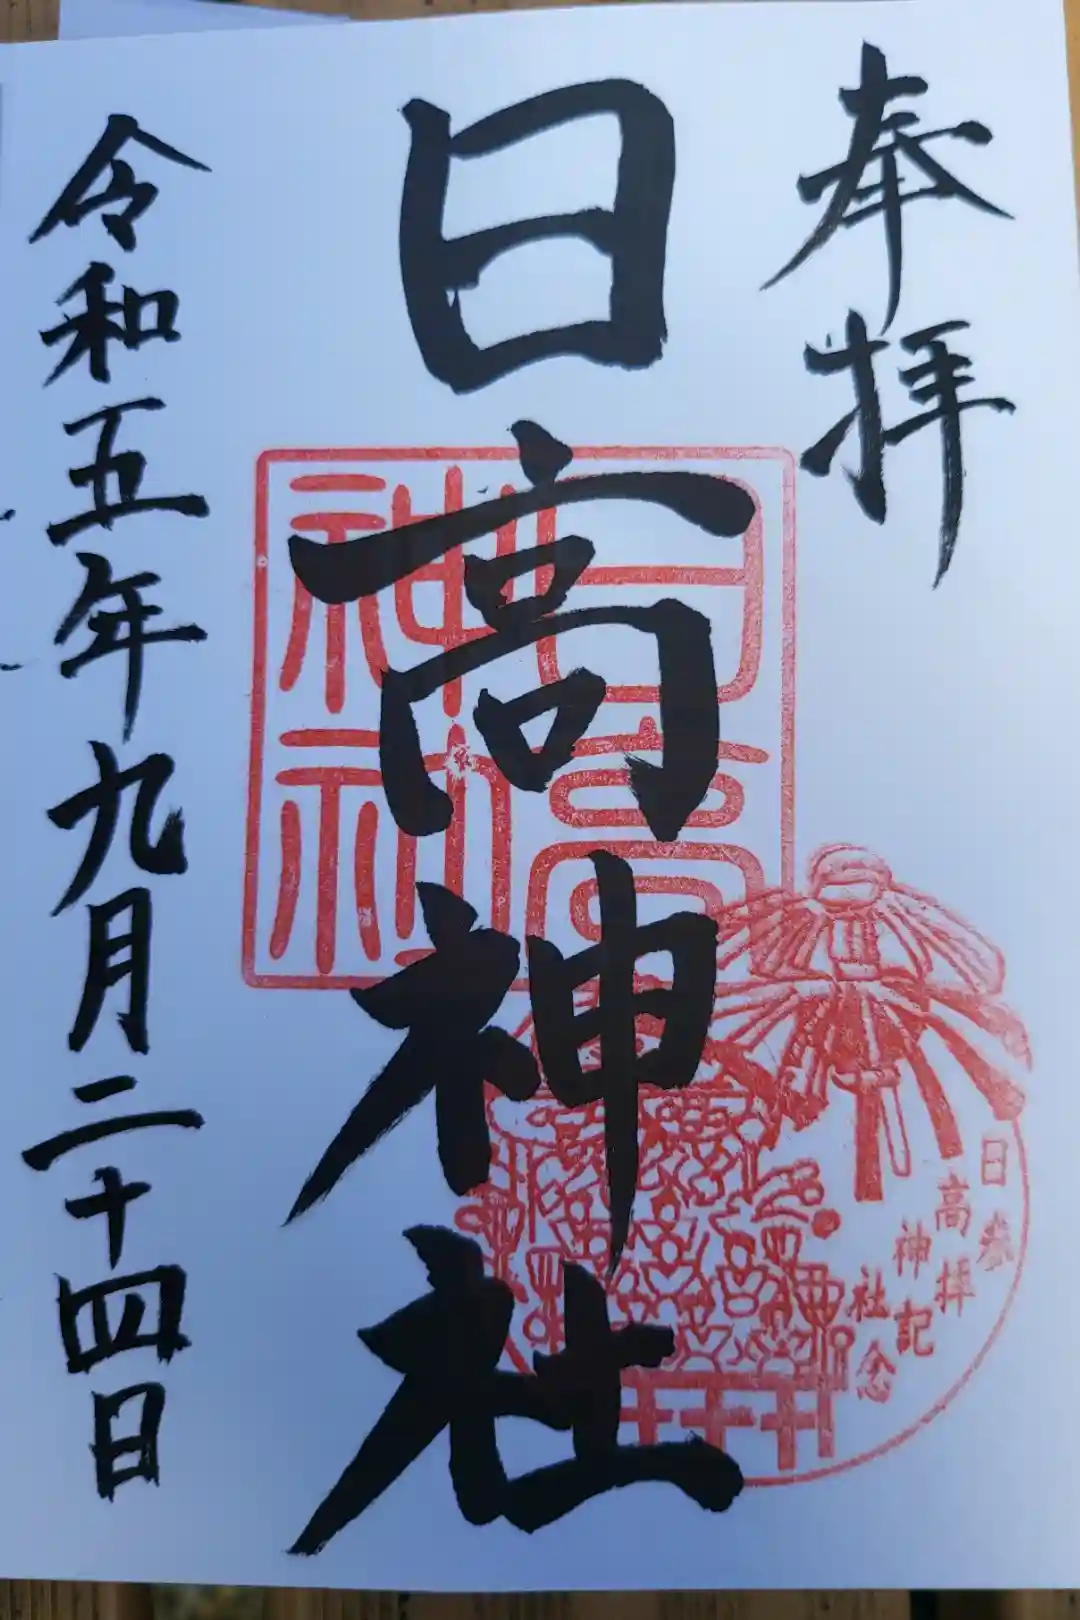 奉拝
日高神社
日高
神社
日高神社
参拝記念
令和五年九月二十四日